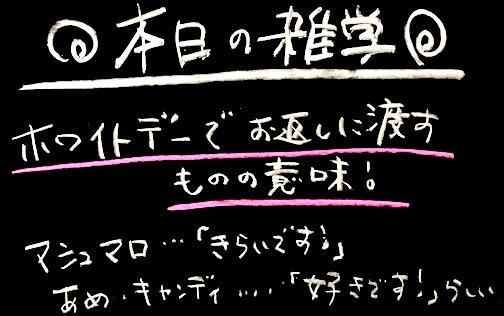 本日の雑学
ホワイトデーでお返しに渡す
ものの意味!
マシュマロ…「きらいです!」
あめ・・キャンディ・・・・「好きです!」らしい